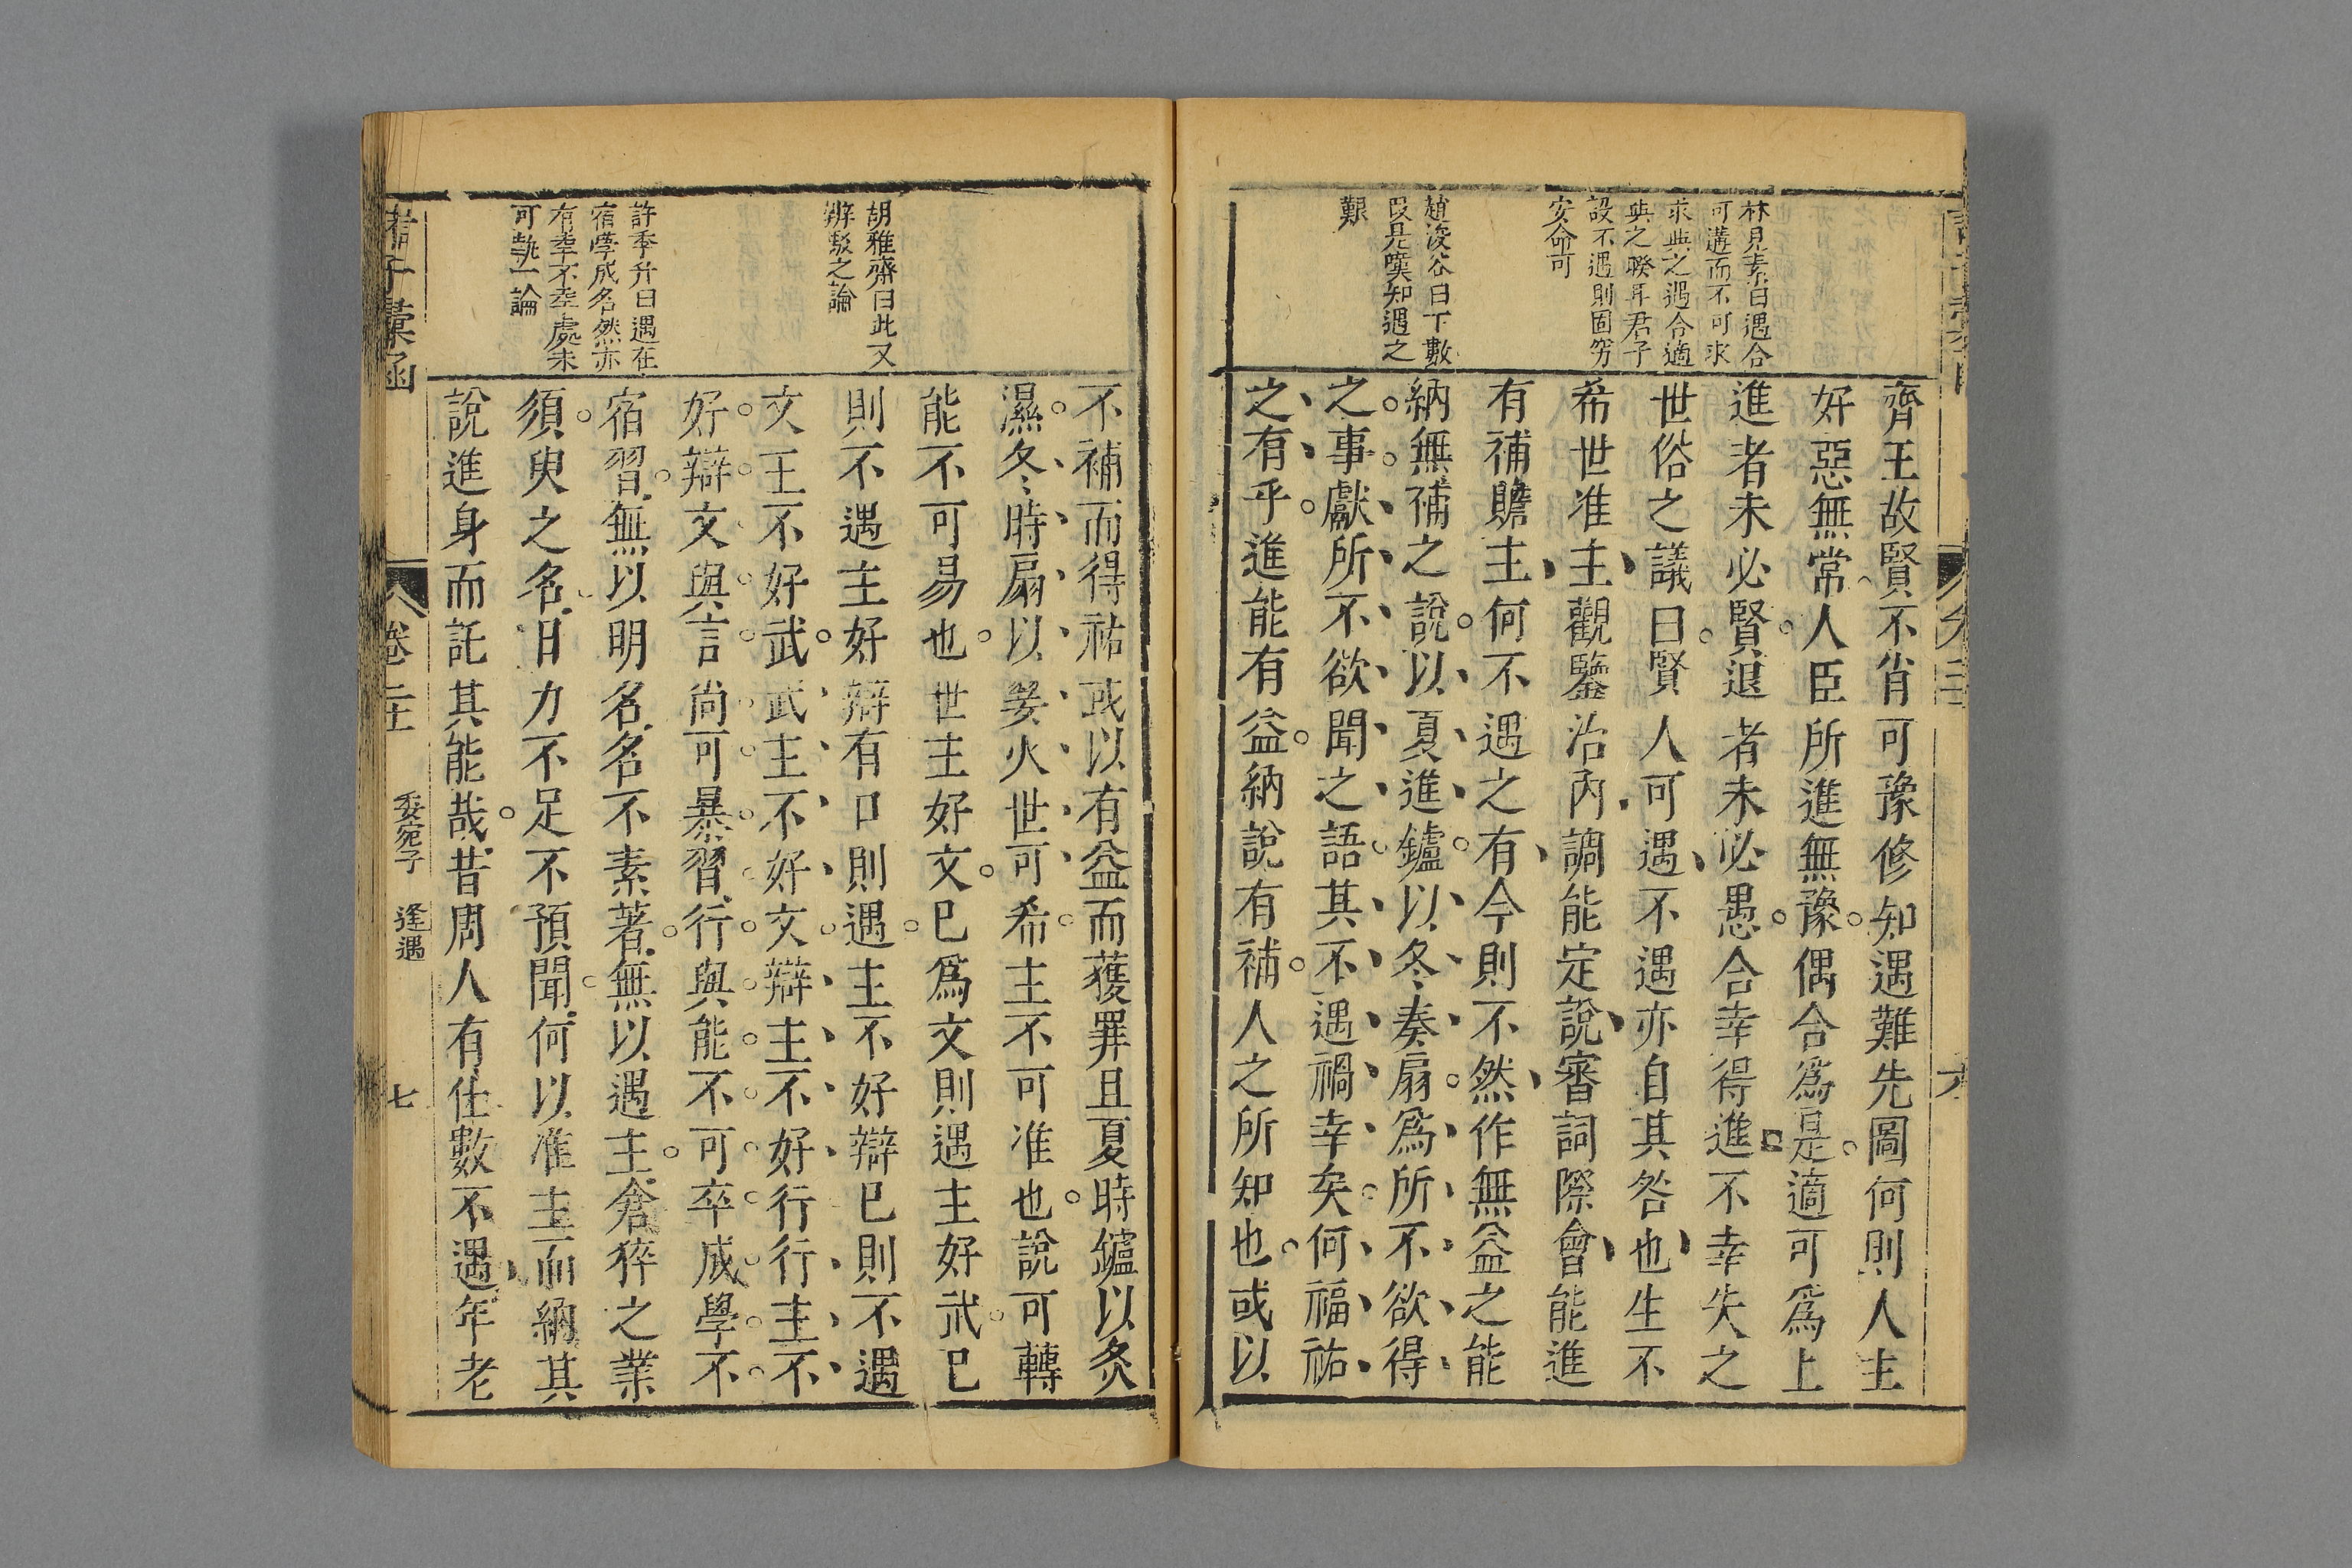 林見素曰遇合
可遘而不可求
求與之遇合適
與之睽耳君子
設不遇則固窮
安命可
趙浚谷曰下數
叚是嘆知遇之
艱
齊王故賢不肖可豫修知遇難先圖何則人主
好惡無常人臣所進無豫偶合爲是適可爲上
進者未必賢退者未必愚合幸得進不幸失之
世俗之議曰賢人可遇不遇亦自其咎也生不
希世准主觀鑒治內調能定說審詞際會能進
有補贍主何不遇之有今則不然作無益之能
納無補之說以夏進鑪以冬奏扇爲所不欲得
之事獻所不欲聞之語其不遇禍幸矣何福祐
之有乎進能有益納說有補人之所知也或以
胡雅齋曰此又
辨駁之論
許季升曰遇在
宿學成名然亦
有幸不幸處未
可執一論
不補而得祐或以有益而獲罪且夏時鑪以炙
濕冬時扇以翣火世可希主不可准也說可轉
能不可易也世主好文已爲文則遇主好武已
則不遇主好辯有口則遇主不好辯已則不遇
文王不好武武主不好文辯主不好行行主不
好辯文與言尚可暴習行與能不可卒成學不
宿習無以明名名不素著無以遇主倉猝之業
須臾之名日力不足不預聞何以准主而納其
說進身而託其能哉昔周人有仕數不遇年老
諸子彙函
卷二十一
委宛子 逢遇
七